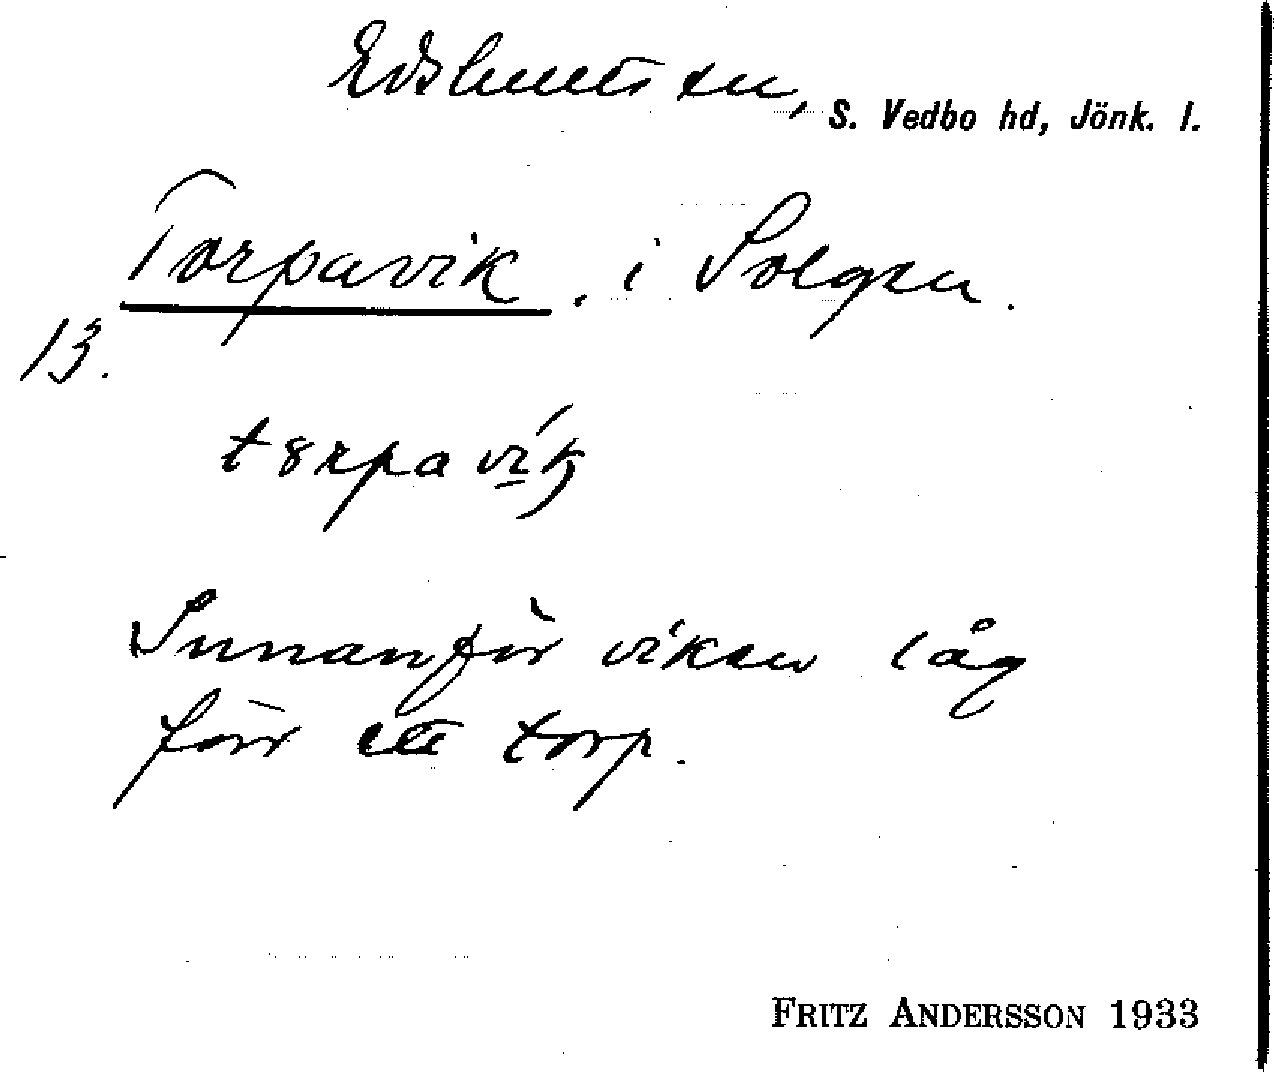 Edshults sn, S. Vedbo hd, Jönk. l.
Torpavik. i Solgen.
13.
Innanför viken låg
förr ett torp.
FRITZ ANDERSSON 1933